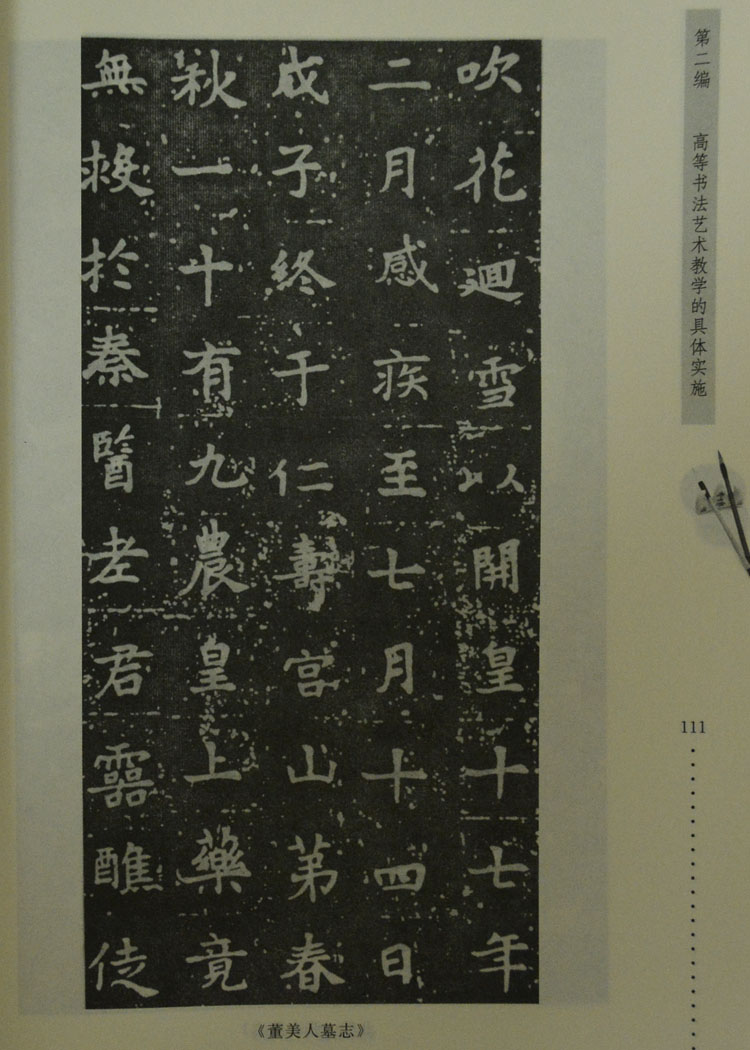 第二编 高等书法艺术教学的具体实施
吹花迴雪以開皇十七年
二月感疾至七月十四日
戊子終于仁壽宮山第春
秋一十有九農皇上藥竟
無救於秦醫老君靈醮徒
《董美人墓志》
111